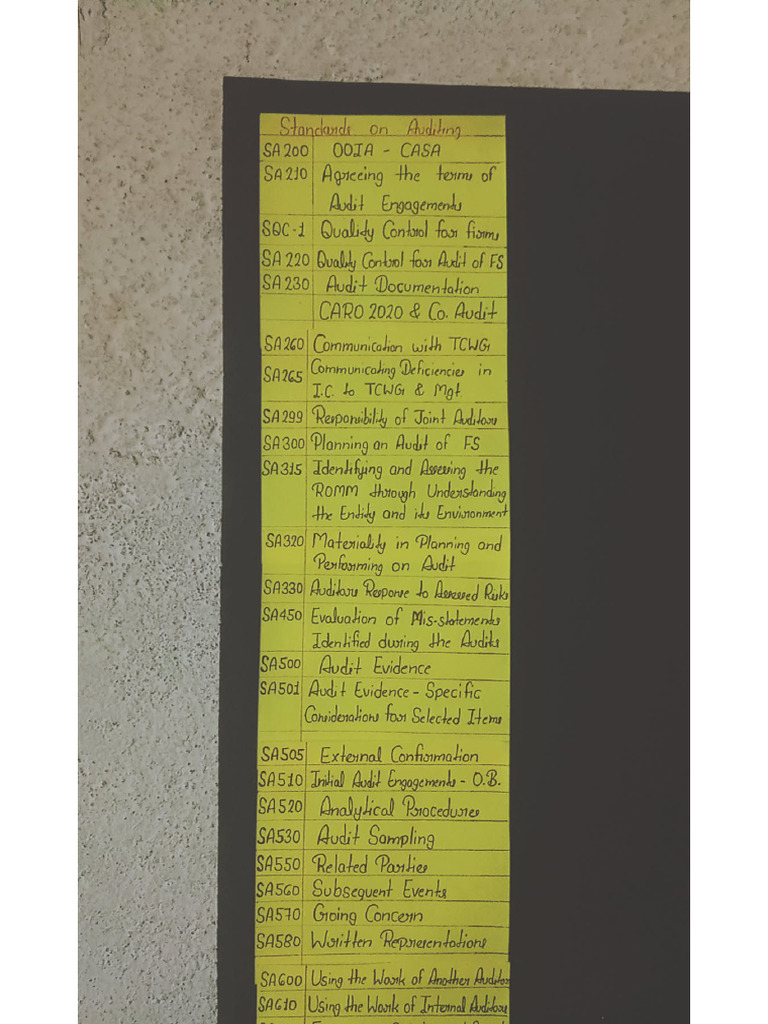 Standards on Auditing
SA200 OOIA - CASA
SA210 Agreeing the terms of
Audit Engagements
SQC-1 Quality Control for firms
SA220 Quality Control for Audit of FS
SA230 Audit Documentation
CARO 2020 & Co. Audit
SA260 Communication with TCWG
SA265 Communicating Deficiencies in
I.C. to TCWG & Mgt
SA299 Responsibility of Joint Auditors
SA300 Planning an Audit of FS
SA315 Identifying and Assessing the
ROMM through Understanding
the Entity and its Environment
SA320 Materiality in Planning and
Performing an Audit
SA330 Auditors Response to Assessed Risks
SA450 Evaluation of Mis-statements
Identified during the Audits
SA500 Audit Evidence
SA501 Audit Evidence - Specific
Considerations for Selected Items
SA505 External Confirmation
SA510 Initial Audit Engagements - O.B.
SA520 Analytical Procedures
SA530 Audit Sampling
SA550 Related Parties
SA560 Subsequent Events
SA570 Going Concern
SA580 Written Representations
SA600 Using the Work of Another Auditor
SA610 Using the Work of Internal Auditors